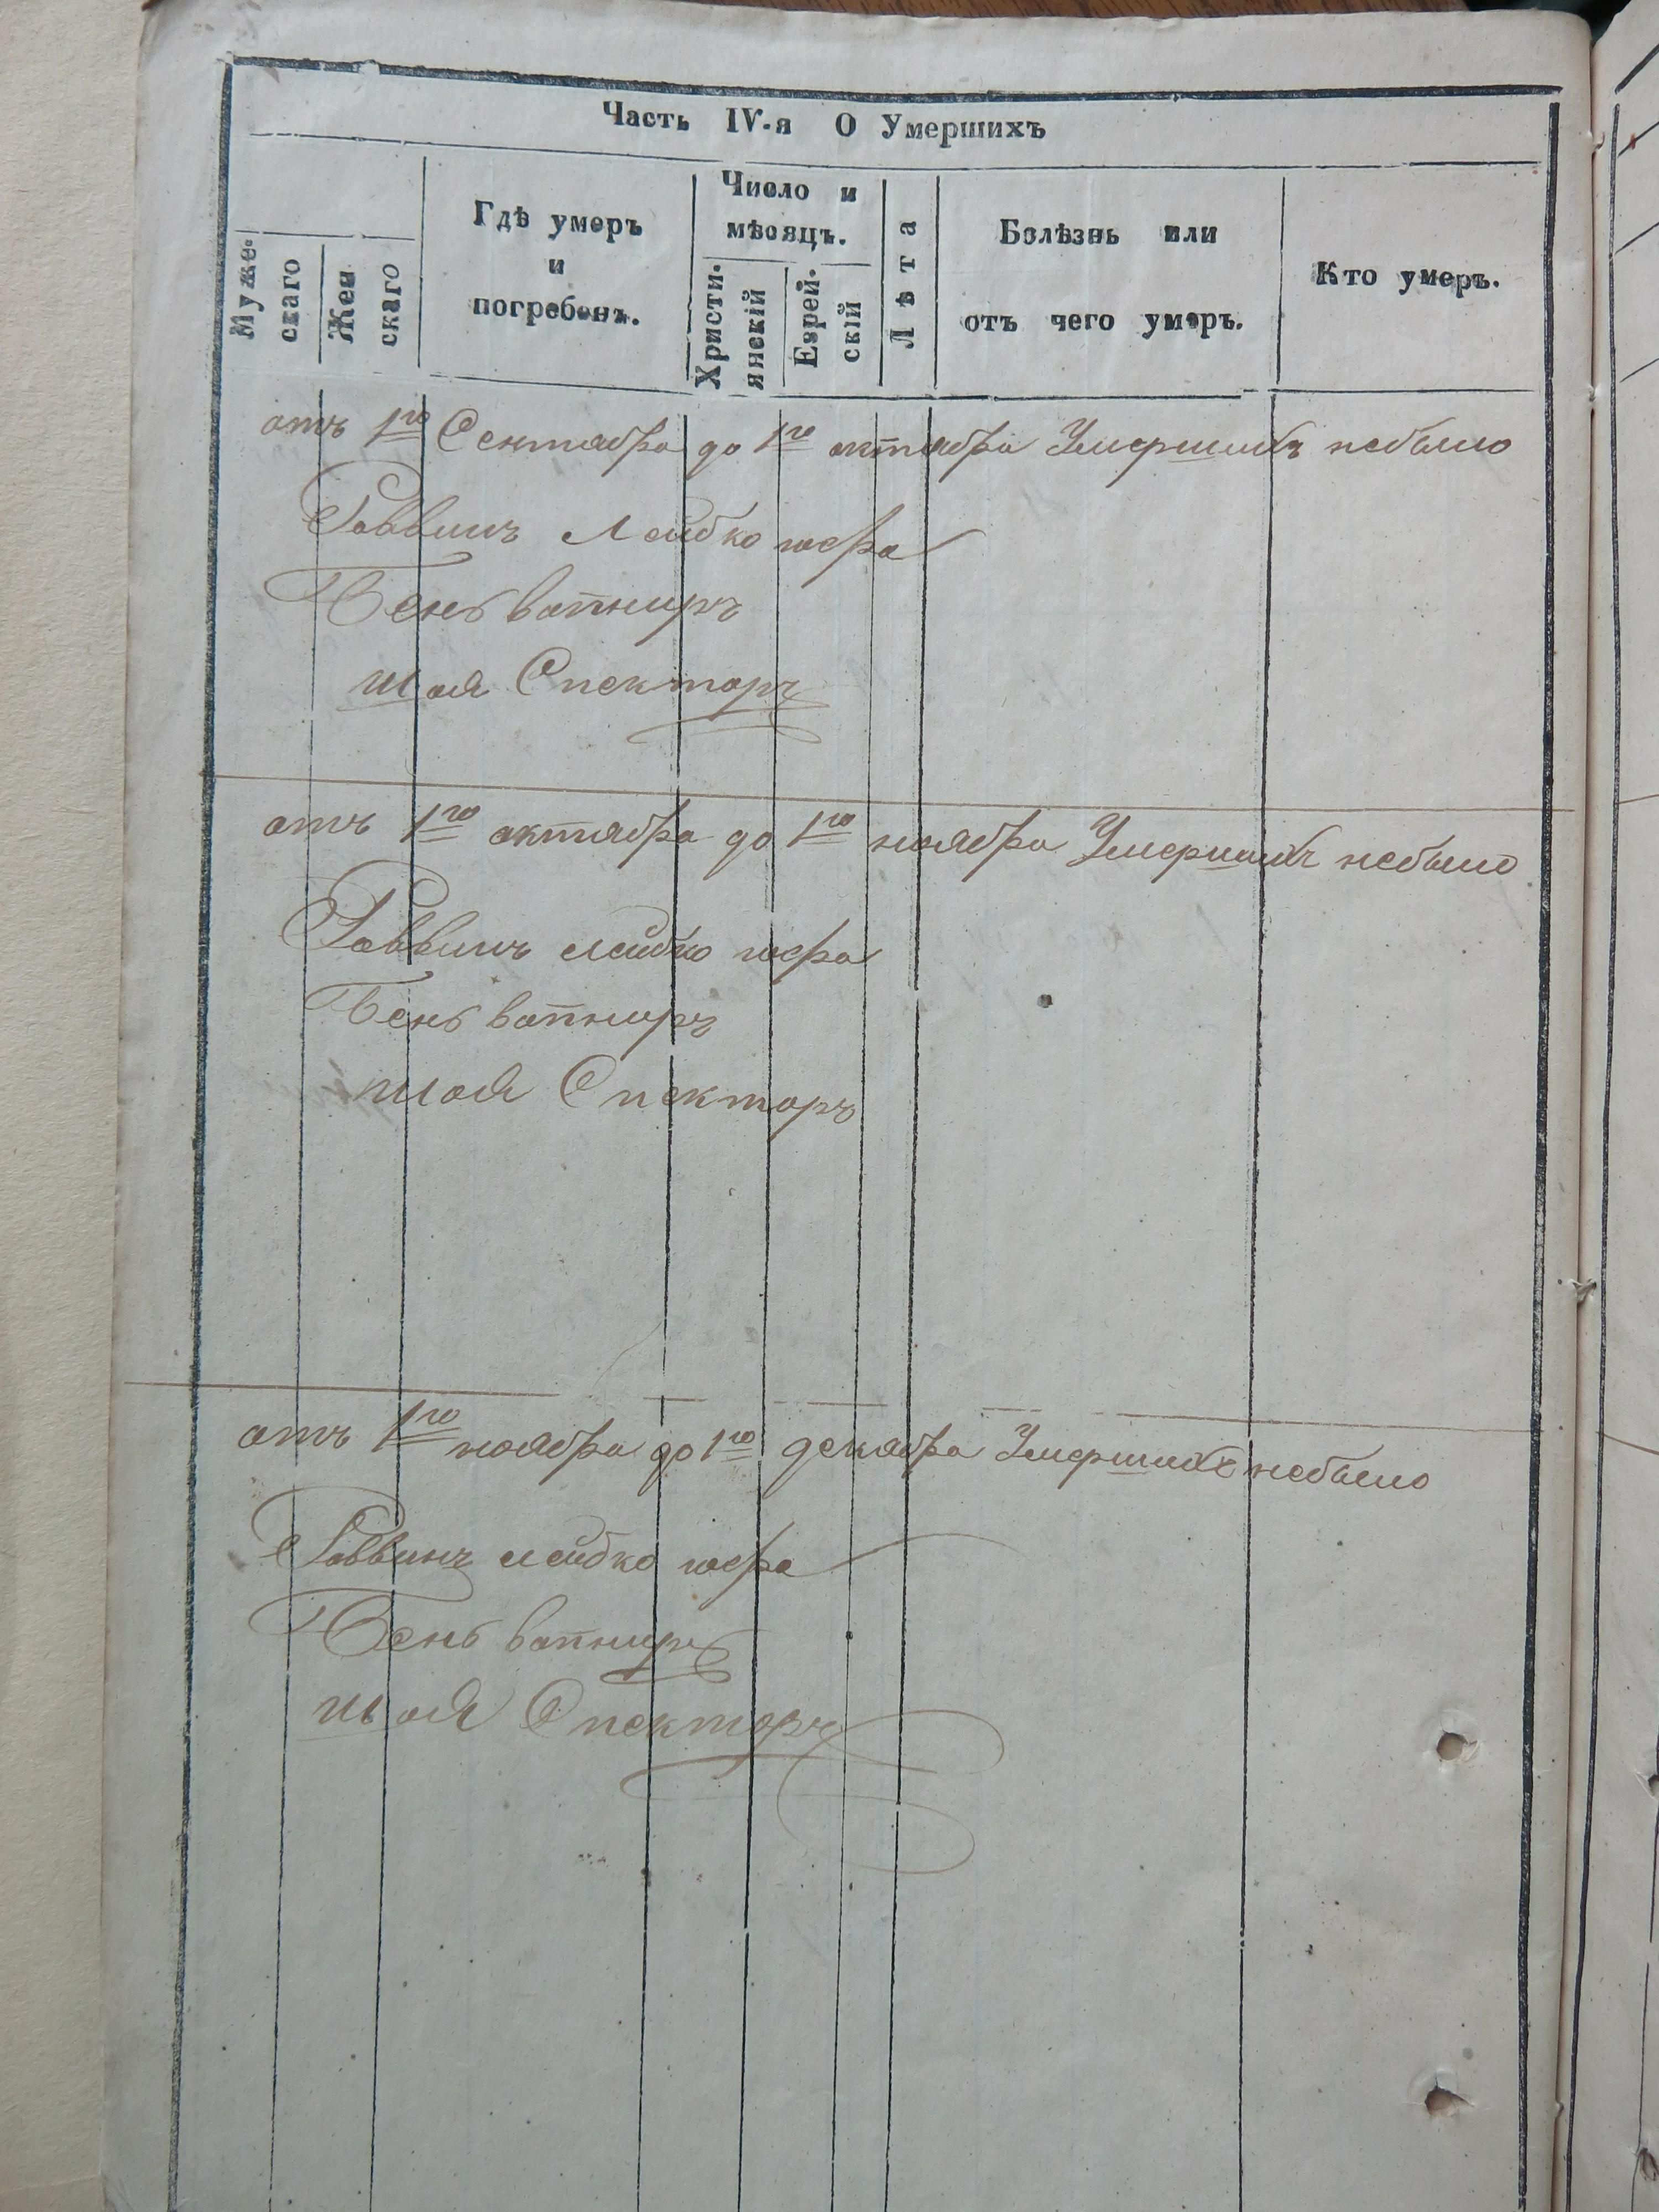 Часть IV-я О Умершихъ
Муже-
скаго
Жен
скаго
Гдѣ умеръ
и
погребенъ.
Число и
мѣсяцъ.
Христи-
янскій
Еврей-
скій
Лѣта
Болѣзнь или
отъ чего умеръ.
Кто умеръ.
отъ 1го Сентября до 1го октября Умершихъ небыло
Раввинъ Лейбко
Бень вапниръ
шая Спекторъ
отъ 1го октября до 1го ноября Умершихъ небыло
Раввинъ лейбко
Бень вапниръ
шая Спекторъ
отъ 1го ноября до 1го декабря Умершихъ небыло
Раввинъ лейбко
Бень вапниръ
шая Спекторъ